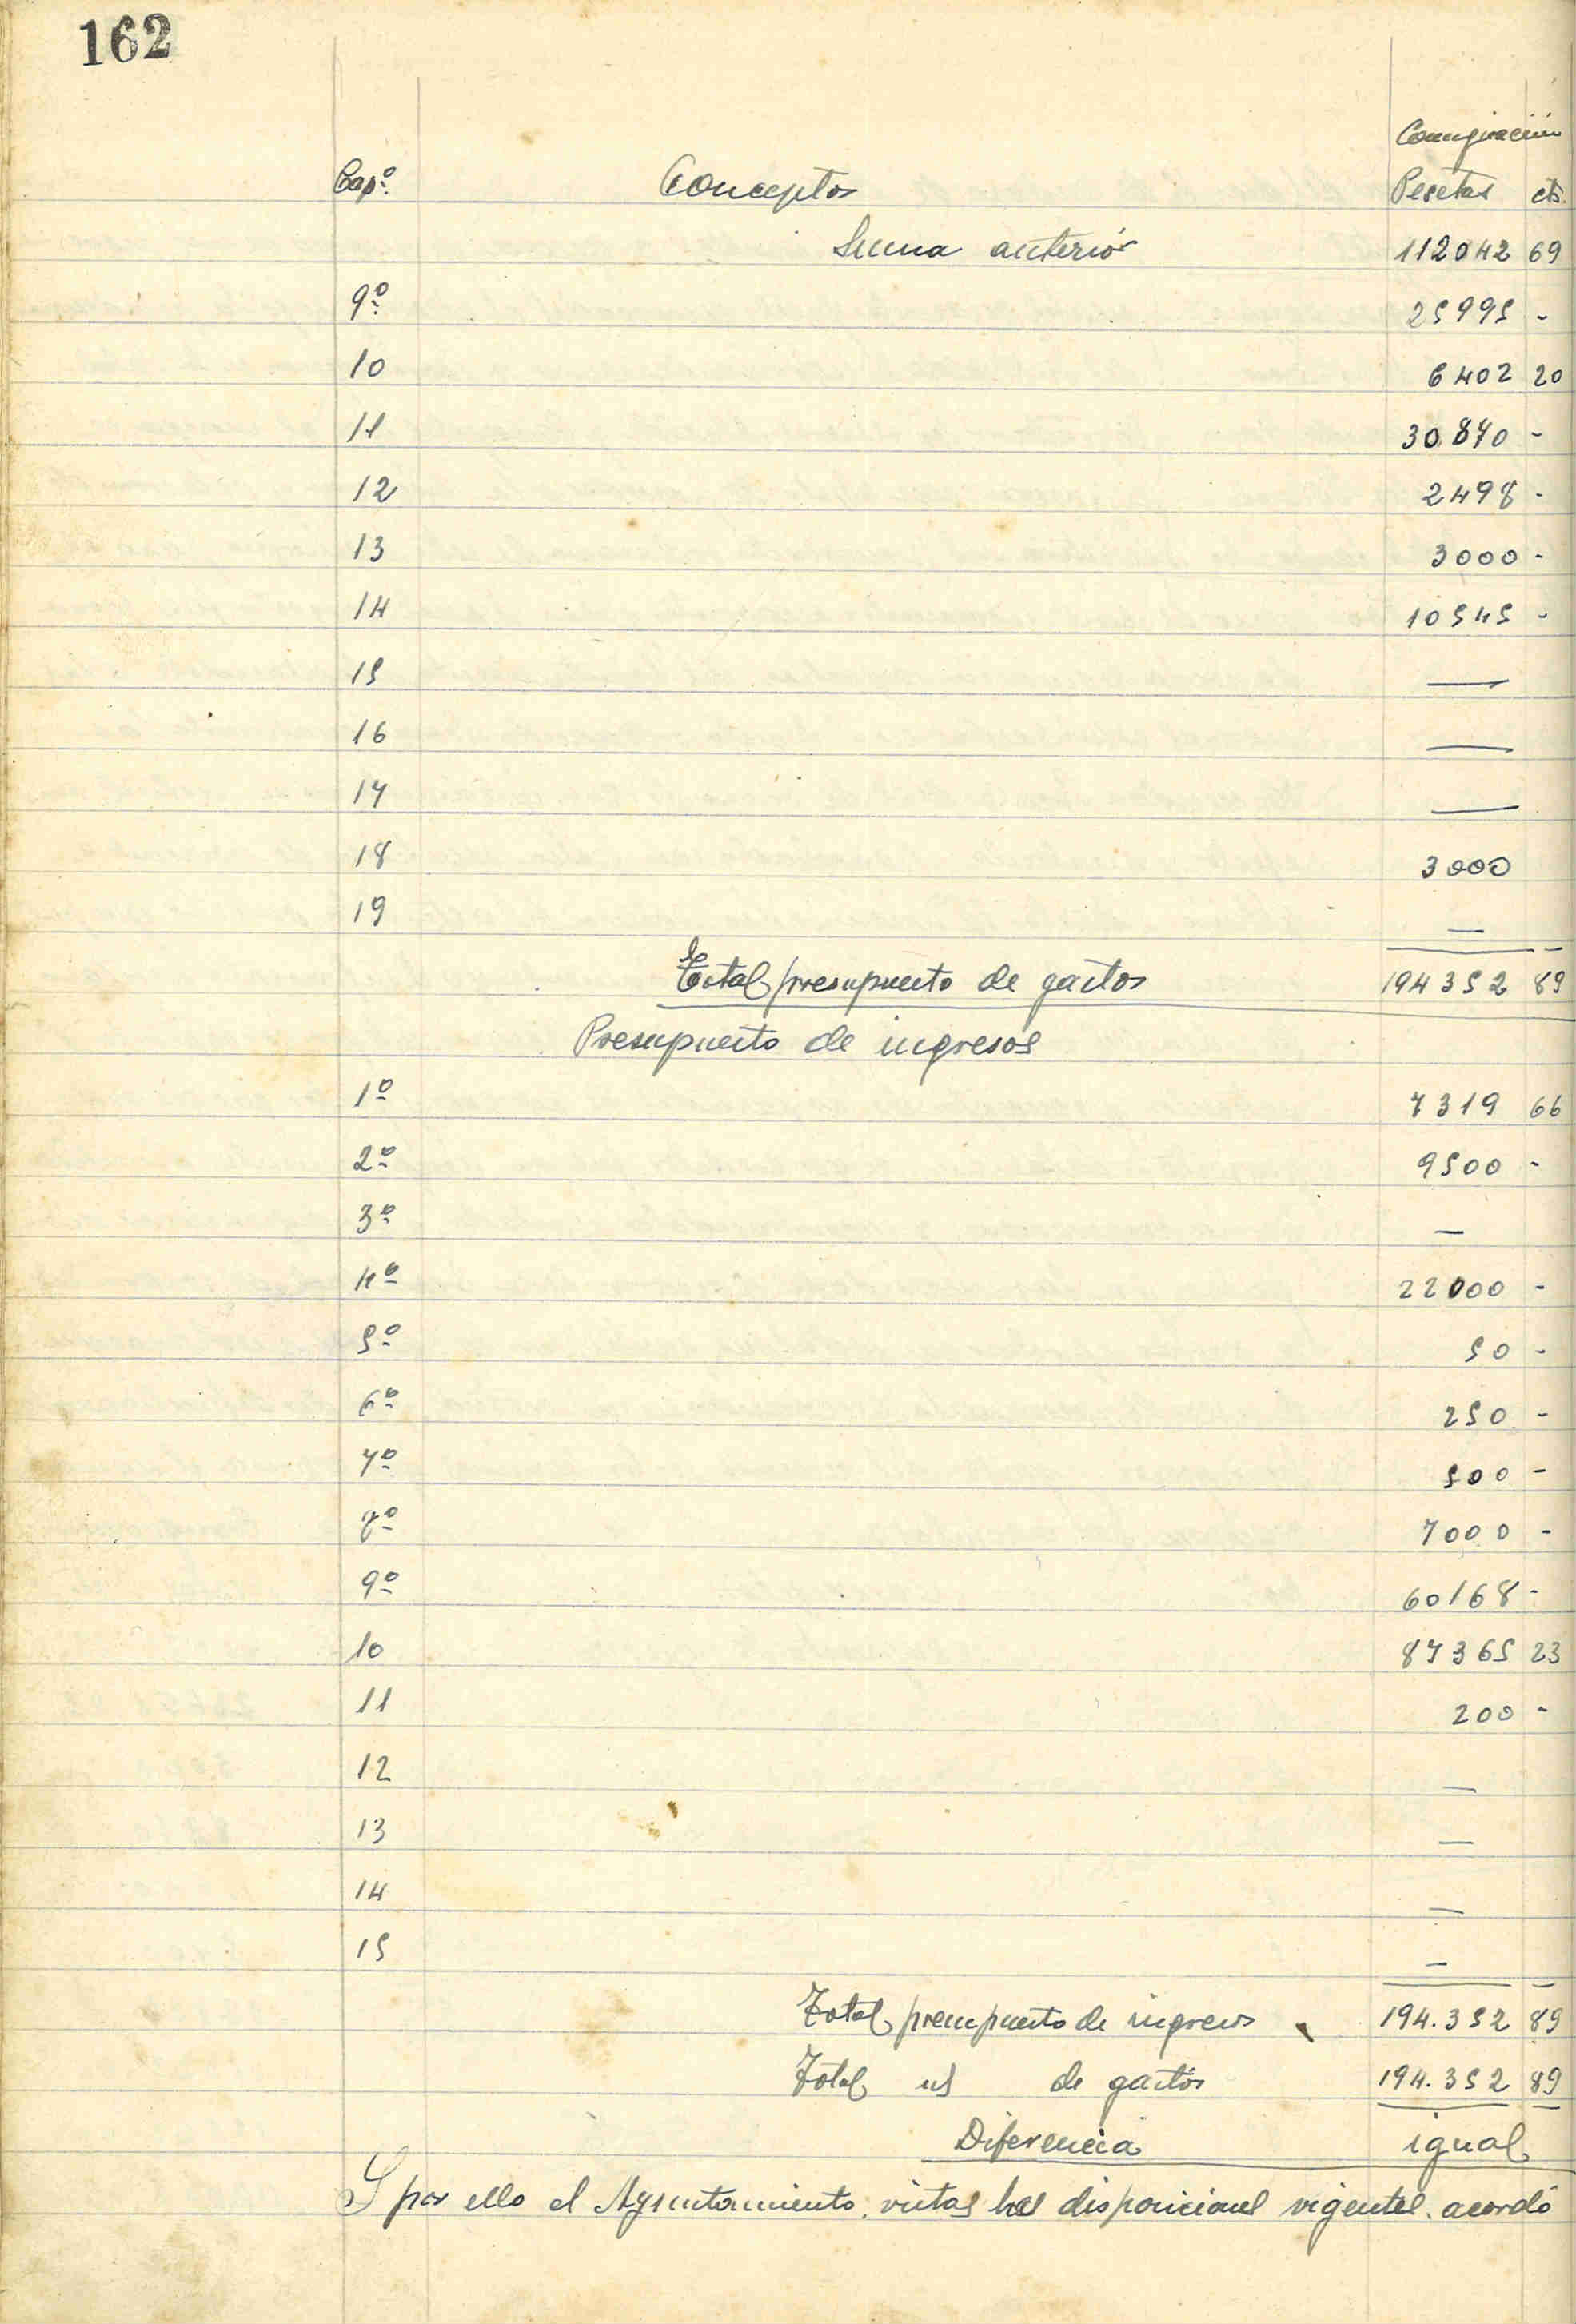 162
Consignación
Capº. Conceptos Pesetas cts.
Suma anterior 112042 69
9º 25995 -
10 6402 20
11 30.870 -
12 2498 -
13 3000 -
14 10545 -
15 —
16 —
17 —
18 3000
19 —
Total presupuesto de gastos 194352 89
Presupuesto de ingresos
1º 7319 66
2º 9500 -
3º —
4º 22000 -
5º 50 -
6º 250 -
7º 500 -
8º 7000 -
9º 60168 -
10 87365 23
11 200 -
12 —
13 —
14 —
15 —
Total presupuesto de ingresos 194.352 89
Total id de gastos 194.352 89
Diferencia igual
Y por ello el Ayuntamiento, vistas las disposiciones vigentes, acordó